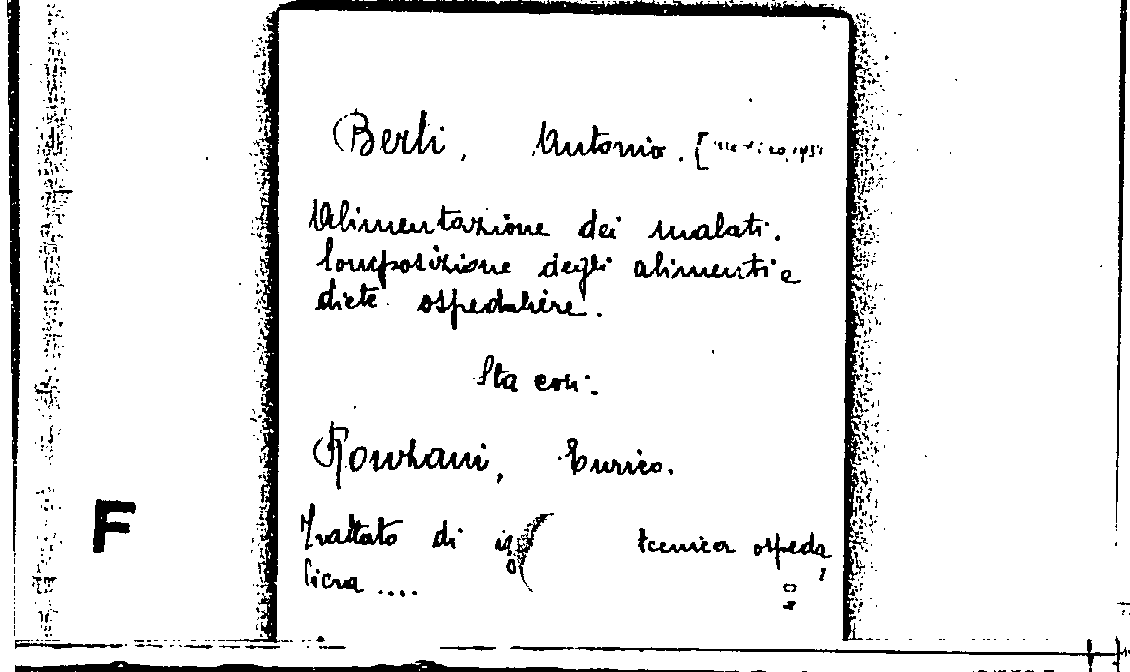 Berti, Antonio. [medico, 195
Alimentazione dei malati.
Composizione degli alimenti e
diete ospedaliere.
Sta con:
Ronzani, Enrico.
F
Trattato di ig tecnica ospeda
liera ....